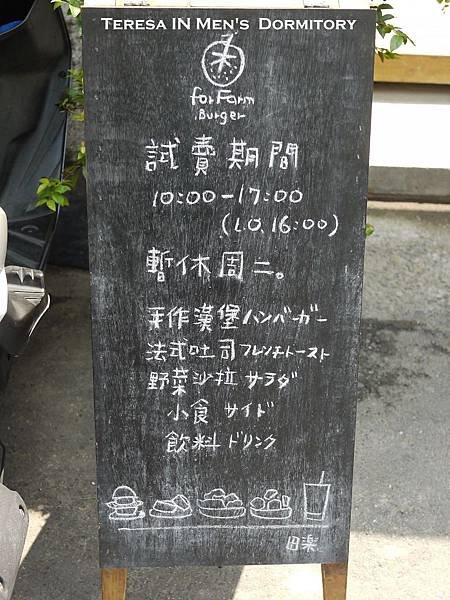 TERESA IN MEN'S DORMITORY
forFarm
Burger
試賣期間
10:00-17:00
(L.O. 16:00)
暫休周二。
手作漢堡 ハンバーガー
法式吐司 フレンチトースト
野菜沙拉 サラダ
小食 サイド
飲料 ドリンク
田楽